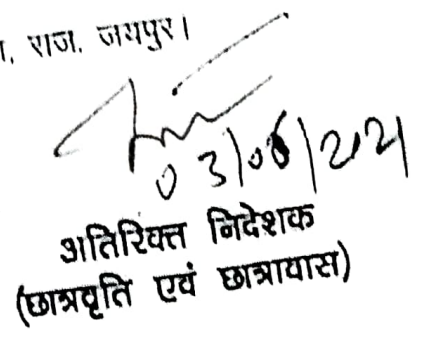 राज. जयपुर।
03/06/2021
अतिरिक्त निदेशक
(छात्रवृति एवं छात्रावास)